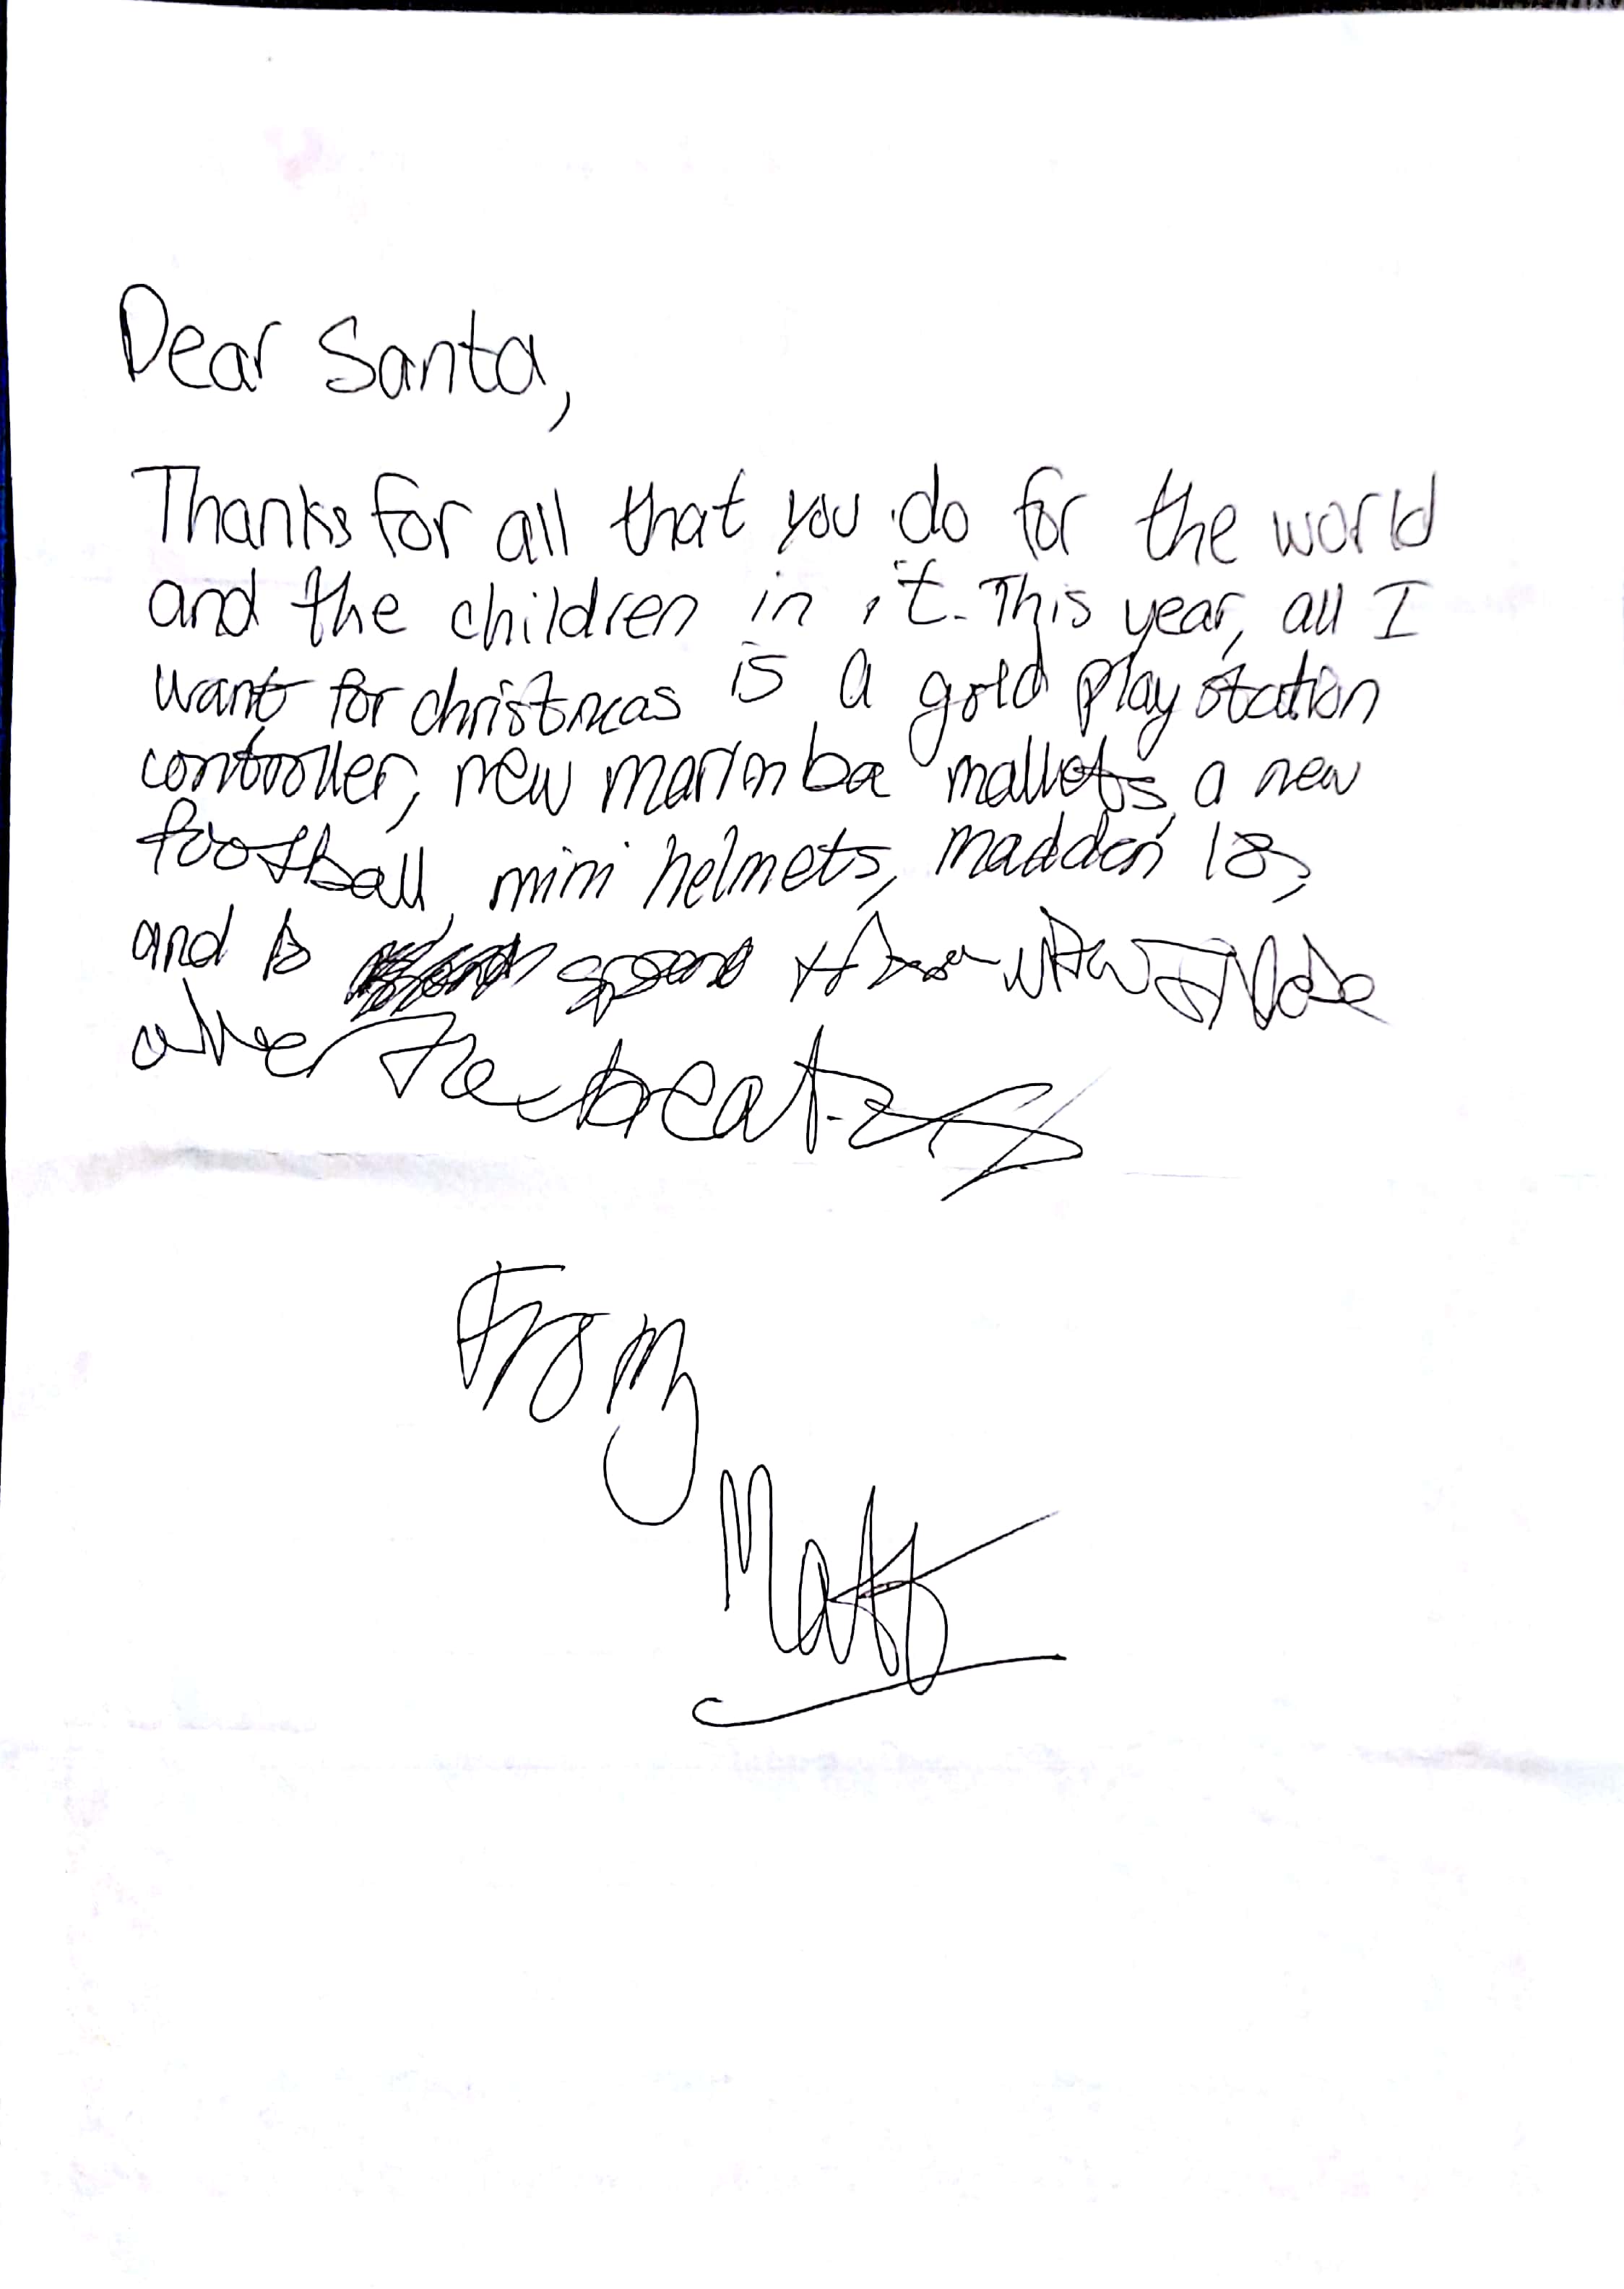 Dear Santa,
Thanks for all that you do for the world
and the children in it. This year, all I
want for christmas is a gold playstation
controller, new marimba mallets, a new
football, mini helmets, madden 18,
and to spend
over the break.
From
Matt